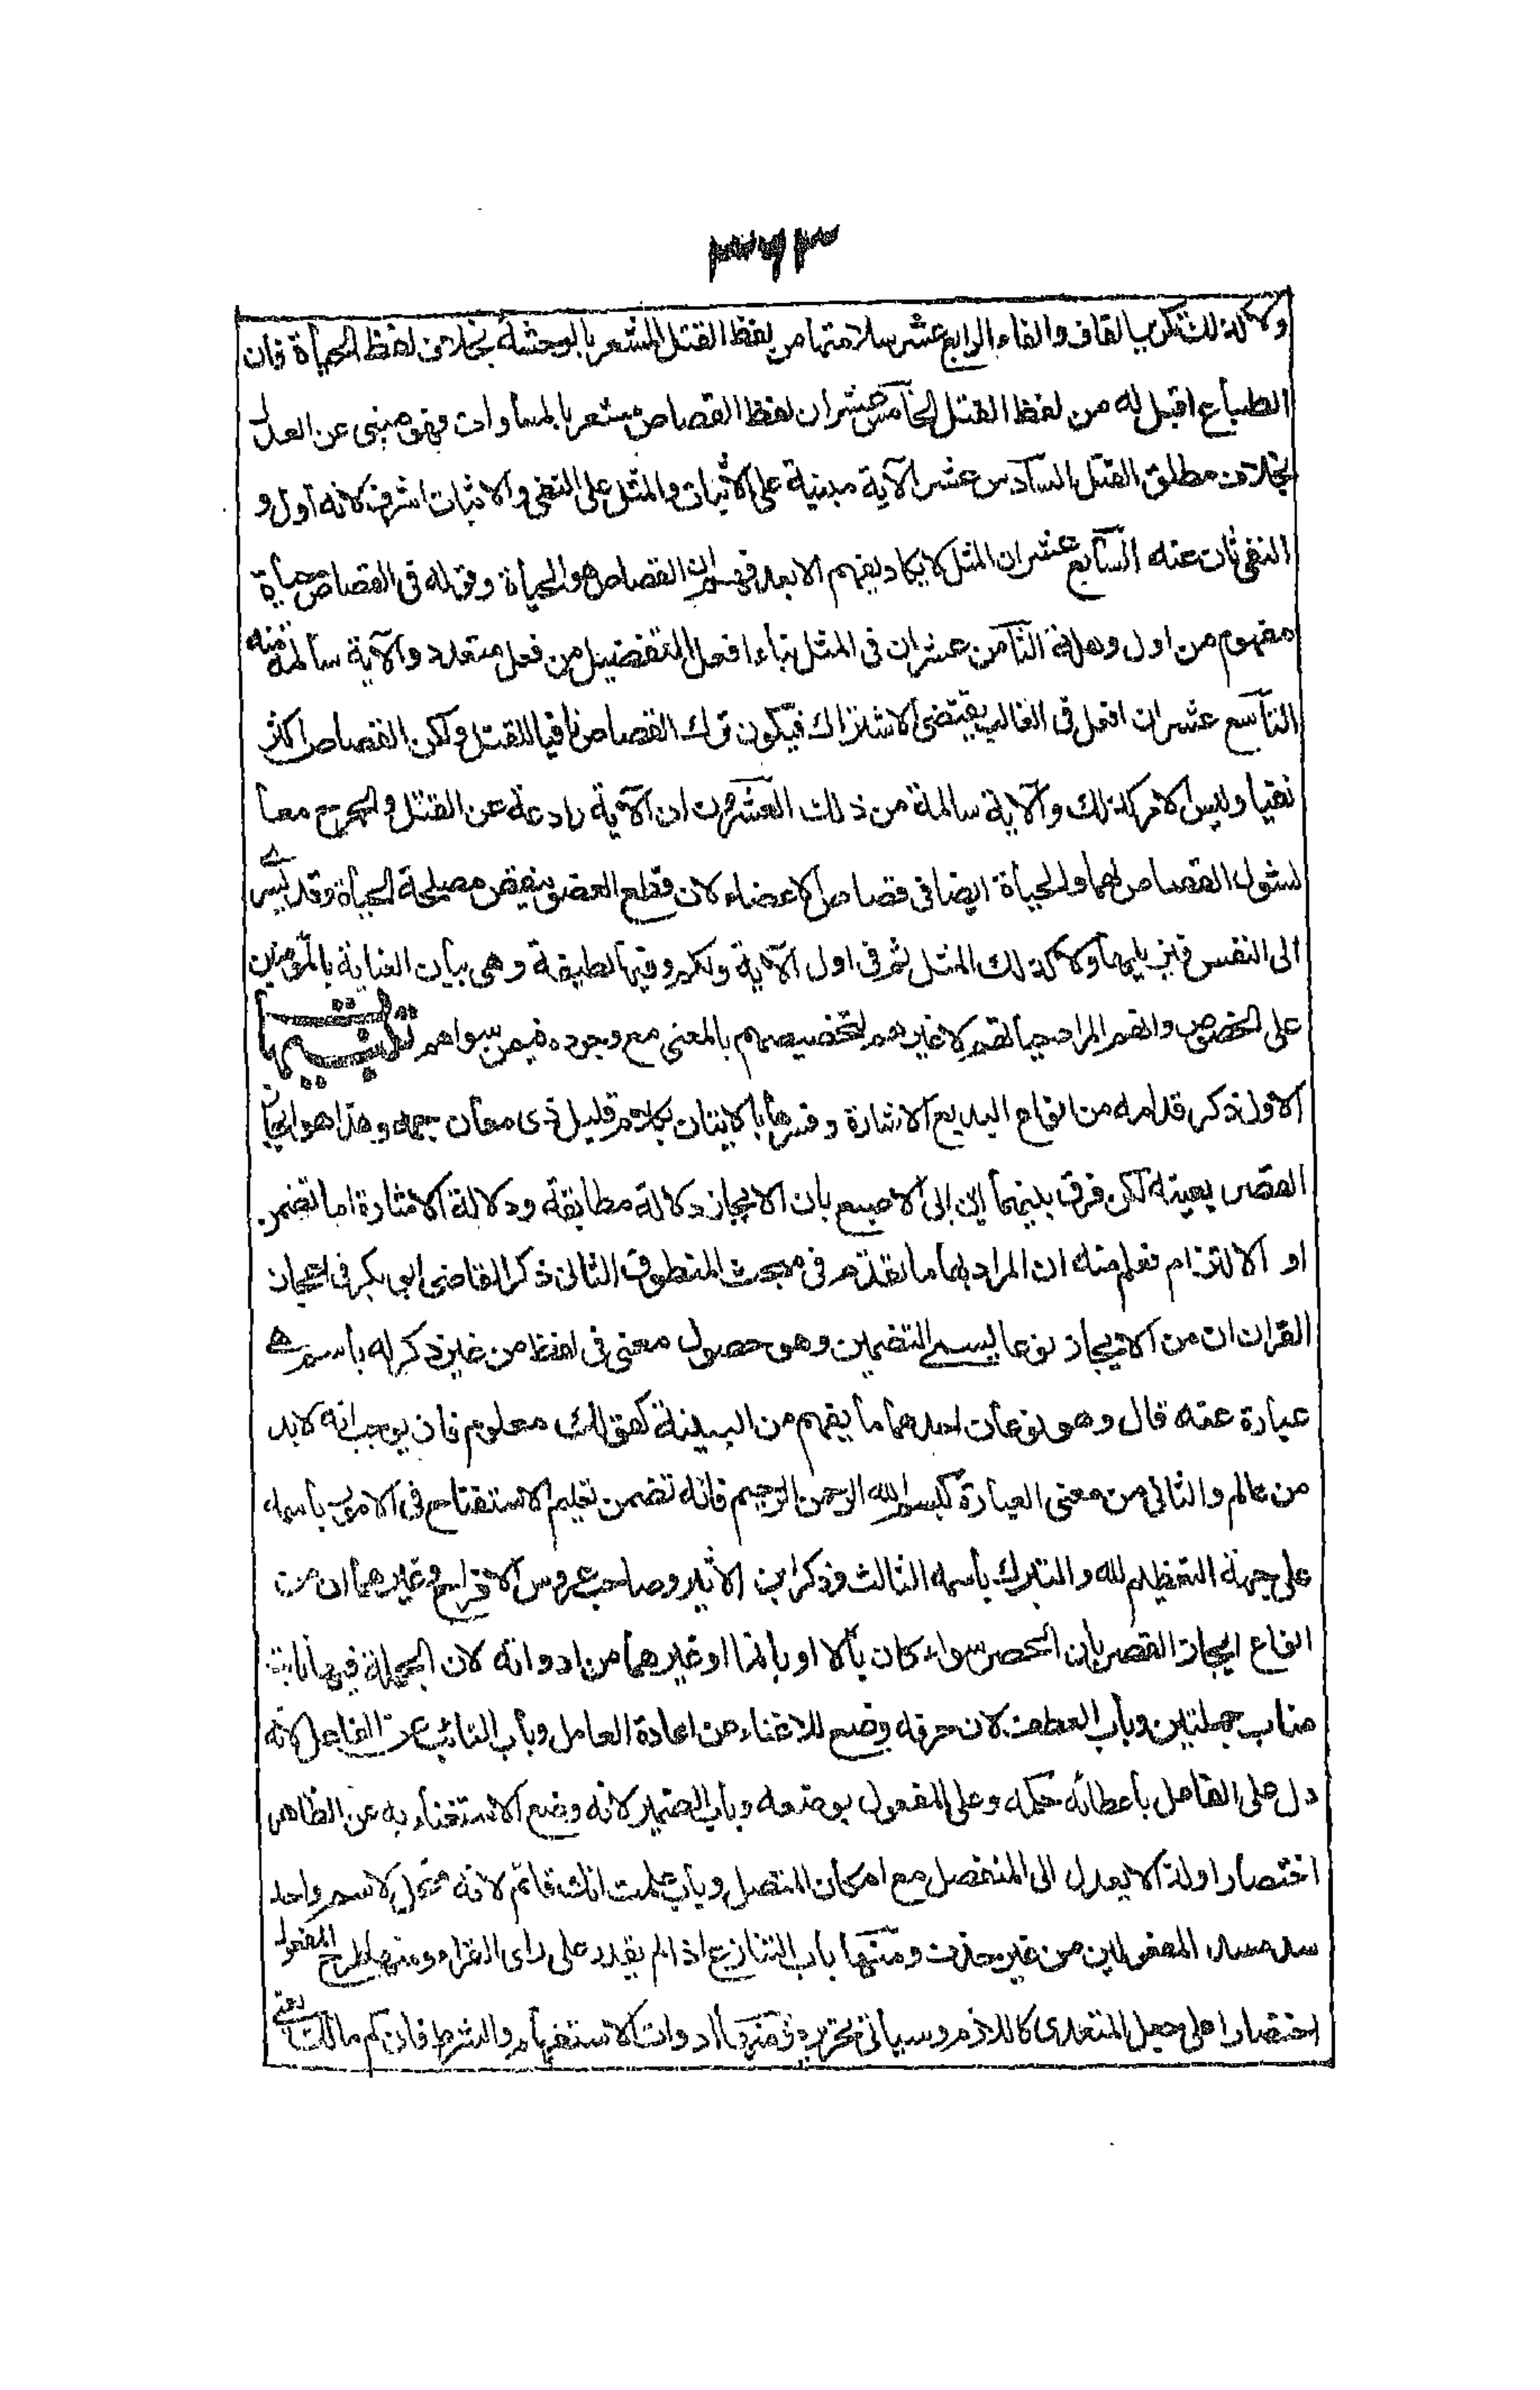 ولا كذلك تكرير القاف والفاء الرابع عشر سلامتها من لفظ القتل المشعر بالوحشة بخلاف لفظ الحياة فان
الطباع اقبل له من لفظ القتل الخامس عشر ان لفظ القصاص مشعر بالمساوات فهو منبى عن العدل
بخلاف مطلق القتل السادس عشر الآية مبنية على الاثبات والمثل على النفي والاثبات اشرف لانه اول و
النفي ثان عنه السابع عشر ان المثل لا يكاد يفهم الا بعد فهم ان القصاص هو الحياة وقوله في القصاص حياة
مفهوم من اول وهلة الثامن عشر ان في المثل بناء افعل التفضيل من فعل متعد والآية سالمة منه
التاسع عشر ان افعل في الغالب يقتضى الاشتراك فيكون ترك القصاص نافيا للقتل ولكن القصاص اكثر
نفيا وليس الامر كذلك والآية سالمة من ذلك العشرون ان الآية رادعة عن القتل والجرح معا
لشمول القصاص لهما والحياة ايضا في قصاص الاعضاء لان قطع العضو ينقص مصلحة الحياة وقد يسرى
الى النفس فيزيلها ولا كذلك المثل ثم في اول الآية ولكم وفيها لطيفة وهى بيان العناية بالمؤمنين
على الخصوص وانهم المراد حياتهم لا غيرهم لتخصيصهم بالمعنى مع وجوده فيمن سواهم تنبيهات
الاول ذكر قدامه من انواع البديع الاشارة وفسرها بالاتيان بكلام قليل ذى معان جمه وهذا هو ايجاز
القصر بعينه لكن فرق بينهما ابن ابى الاصبع بان الايجاز دلالة مطابقة ودلالة الاشارة اما تضمن
او الالتزام فعلم منه ان المراد بها ما تقدم في مبحث المنطوق الثانى ذكر القاضى ابو بكر فى اعجاز
القران ان من الايجاز نوعا يسمى التضمين وهو حصول معنى فى لفظ من غير ذكر له باسم هى
عبارة عنه قال وهو نوعان احدهما ما يفهم من البينة كقولك معلوم فانه يوجب انه لا بد
من عالم والثانى من معنى العبارة كبسم الله الرحمن الرحيم فانه تضمن تعليم الاستفتاح فى الامور باسمه
على جهة التعظيم لله والتبرك باسمه الثالث وذكر ابن الاثير وصاحب عروس الافراح وغيرهما ان من
انواع ايجاز القصر بان الحصر سواء كان بالا او بانما او غيرهما من ادواته لان الجملة فيها نابت
مناب جملتين وباب العطف لان حرفه وضع للاغناء من اعادة العامل وباب النائب عن الفاعل لانه
دل على الفاعل باعطائه حكمه وعلى المفعول بوضعه وباب الضمير لانه وضع الاستغناء به عن الظاهر
اختصارا ولذا لا يعدل الى المنفصل مع امكان المتصل وباب علمت انك قائم لانه متحمل لاسم واحد
سد مسد المفعولين من غير حذف ومنها باب التنازع اذا لم يقدر على راى الفراء ومنها طرح المفعول
اختصارا على جعل المتعدى كاللازم وسياتى تحريره ومنها ادوات الاستفهام والشرط فان كم مالك يغنى